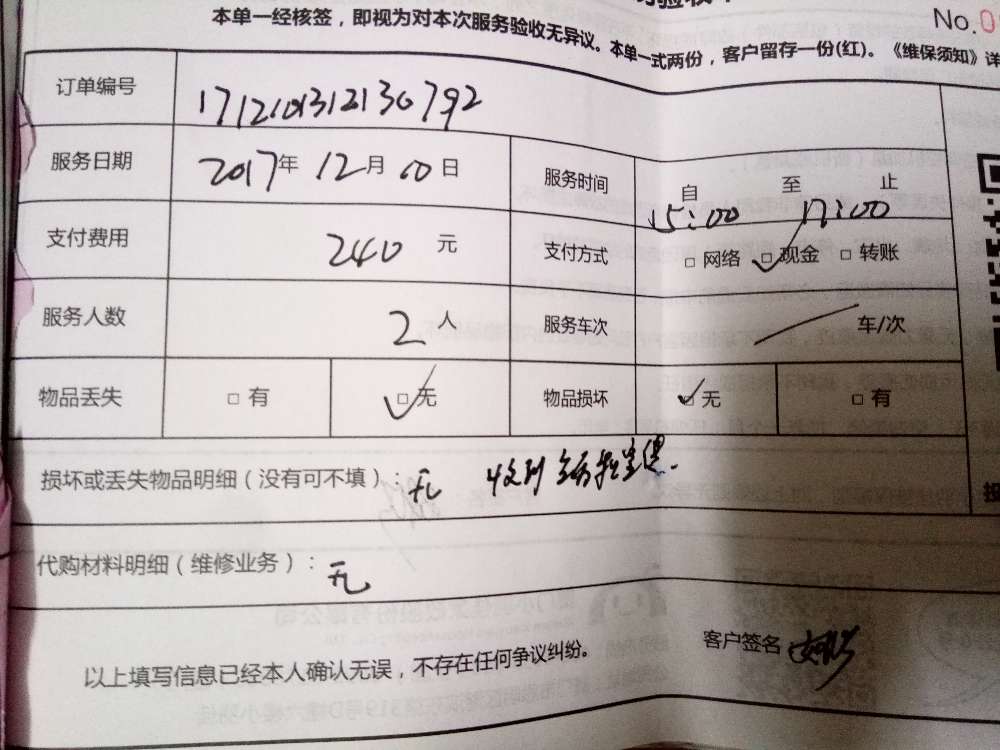 本单一经核签，即视为对本次服务验收无异议。本单一式两份，客户留存一份(红)。《维保须知》详
No.0
订单编号 171210312130792
服务日期 2017年 12月 10日 服务时间 自 至 止
15:00 17:00
支付费用 240 元 支付方式 □ 网络 □ 现金 □ 转账
服务人数 2 人 服务车次 车/次
物品丢失 □ 有 □ 无 物品损坏 □ 无 □ 有
损坏或丢失物品明细（没有可不填）：无 收到
代购材料明细（维修业务）：无
以上填写信息已经本人确认无误，不存在任何争议纠纷。 客户签名